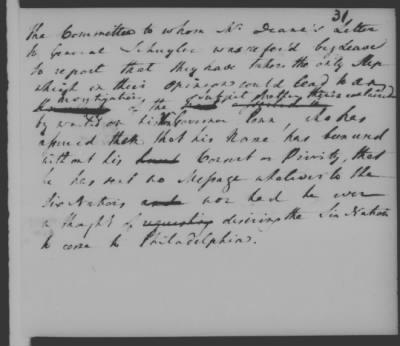 31
The Committee to whom Mr Deane's Letter
to General Schuyler was refer'd beg Leave
to report that they have taken the only Step
which in their Opinions could lead to an
Investigation of the
by waiting on Governor Penn, who has
assured them that his Name has been used
without his Consent or Privity, that
he has sent no Message whatever to the
Six Nations nor had he ever
a thought of requesting desiring the Six Nations
to come to Philadelphia.